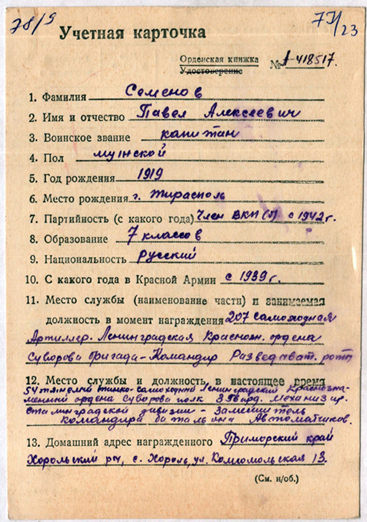 78/5
Учетная карточка
Орденская книжка
Удостоверение
№ 418517.
1. Фамилия Семенов
2. Имя и отчество Павел Алексеевич
3. Воинское звание капитан
4. Пол мужской
5. Год рождения 1919
6. Место рождения г. Тирасполь
7. Партийность (с какого года) Член ВКП(б) с 1942 г.
8. Образование 7 классов
9. Национальность Русский
10. С какого года в Красной Армии с 1939 г.
11. Место службы (наименование части) и занимаемая
должность в момент награждения 207 самоходная
Артиллер. Ленинградская Краснозн. ордена
Суворова бригада - Командир Разведыват. роты
12. Место службы и должность в настоящее время
54 танко-самоходный Ленинградский Краснозна-
менный ордена Суворова полк 3 гвард. Механизир.
Сталинградской дивизии - Заместитель
командира батальона Автоматчиков.
13. Домашний адрес награжденного Приморский край
Хорольский р-н, с. Хороль, ул. Комсомольская 13.
(См. н/об.)